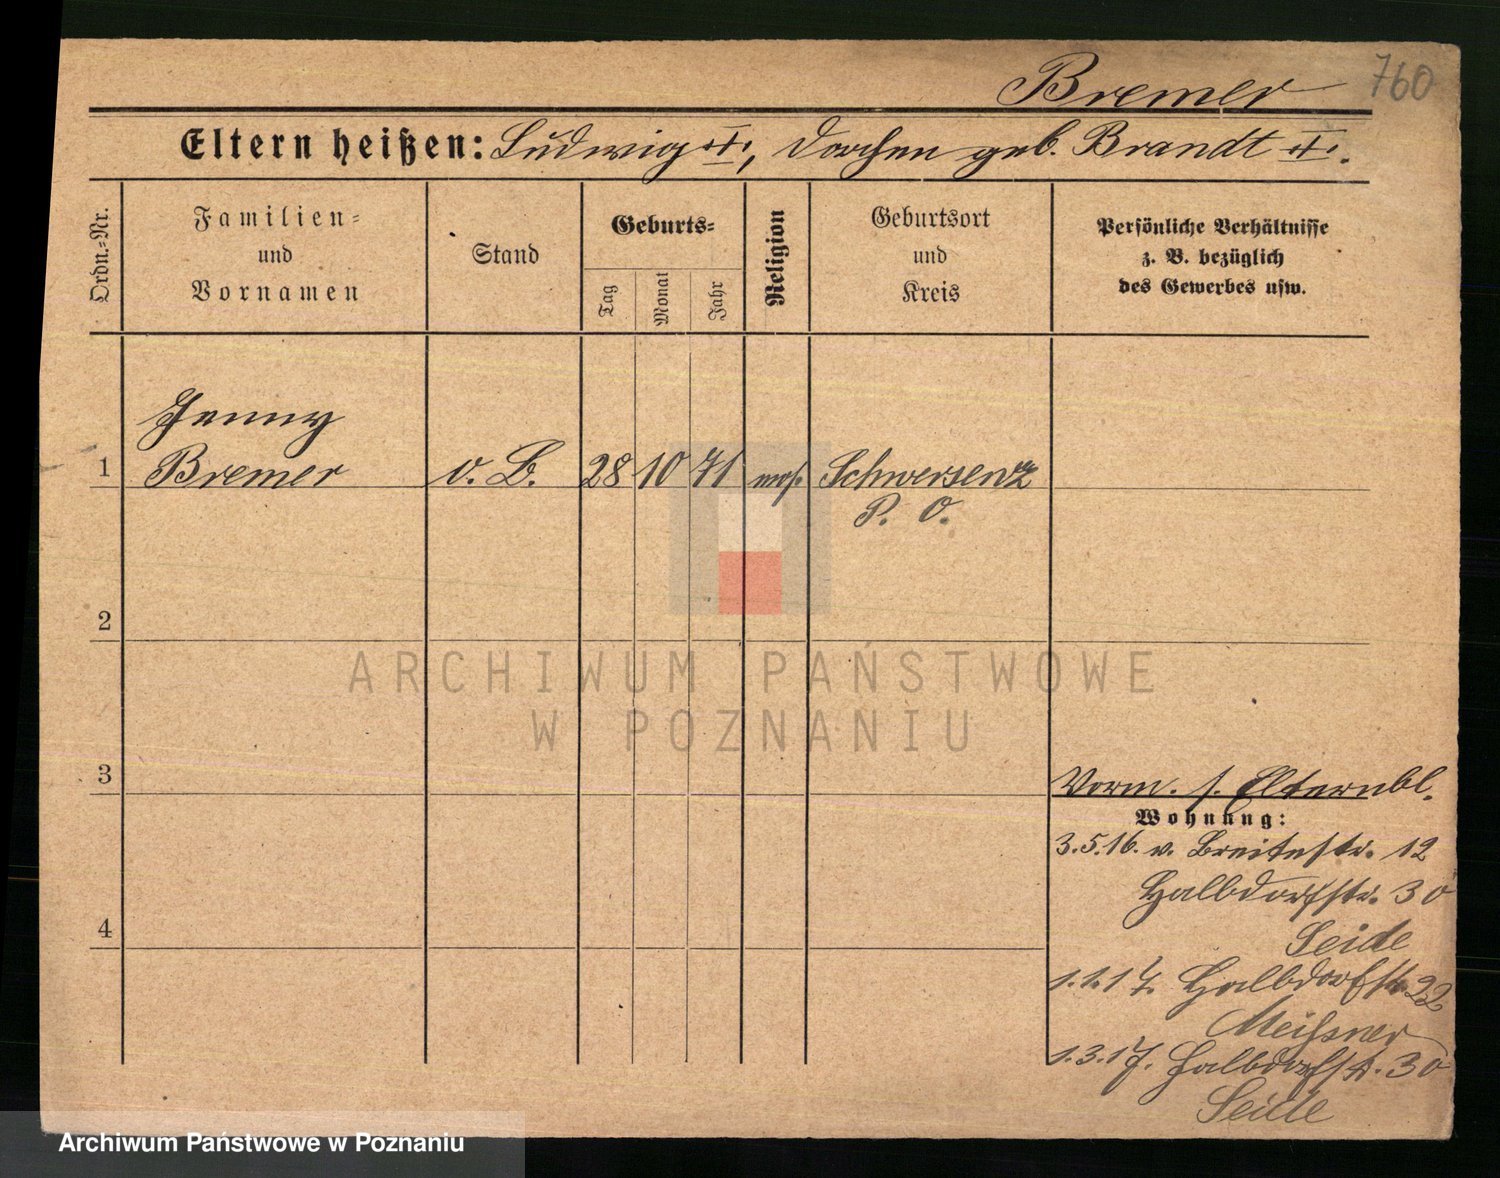 Bremer 760
Eltern heißen: Ludwig †, Dorchen geb. Brandt †.
Ordn.-Nr.
Familien-
und
Vornamen
Stand
Geburts-
Tag
Monat
Jahr
Religion
Geburtsort
und
Kreis
Persönliche Verhältnisse
z. B. bezüglich
des Gewerbes usw.
Jenny
1 Bremer v. B. 28 10 71 mos. Schwersenz
P. O.
2
ARCHIWUM PAŃSTWOWE
W POZNANIU
3
Vorm. s. Elternbl.
Wohnung:
3.5.16. v. Breitestr. 12
Halbdorfstr. 30
4
Seide
1.1.17. Halbdorfstr. 22
Meißner
1.3.17. Halbdorfstr. 30
Seide
Archiwum Państwowe w Poznaniu